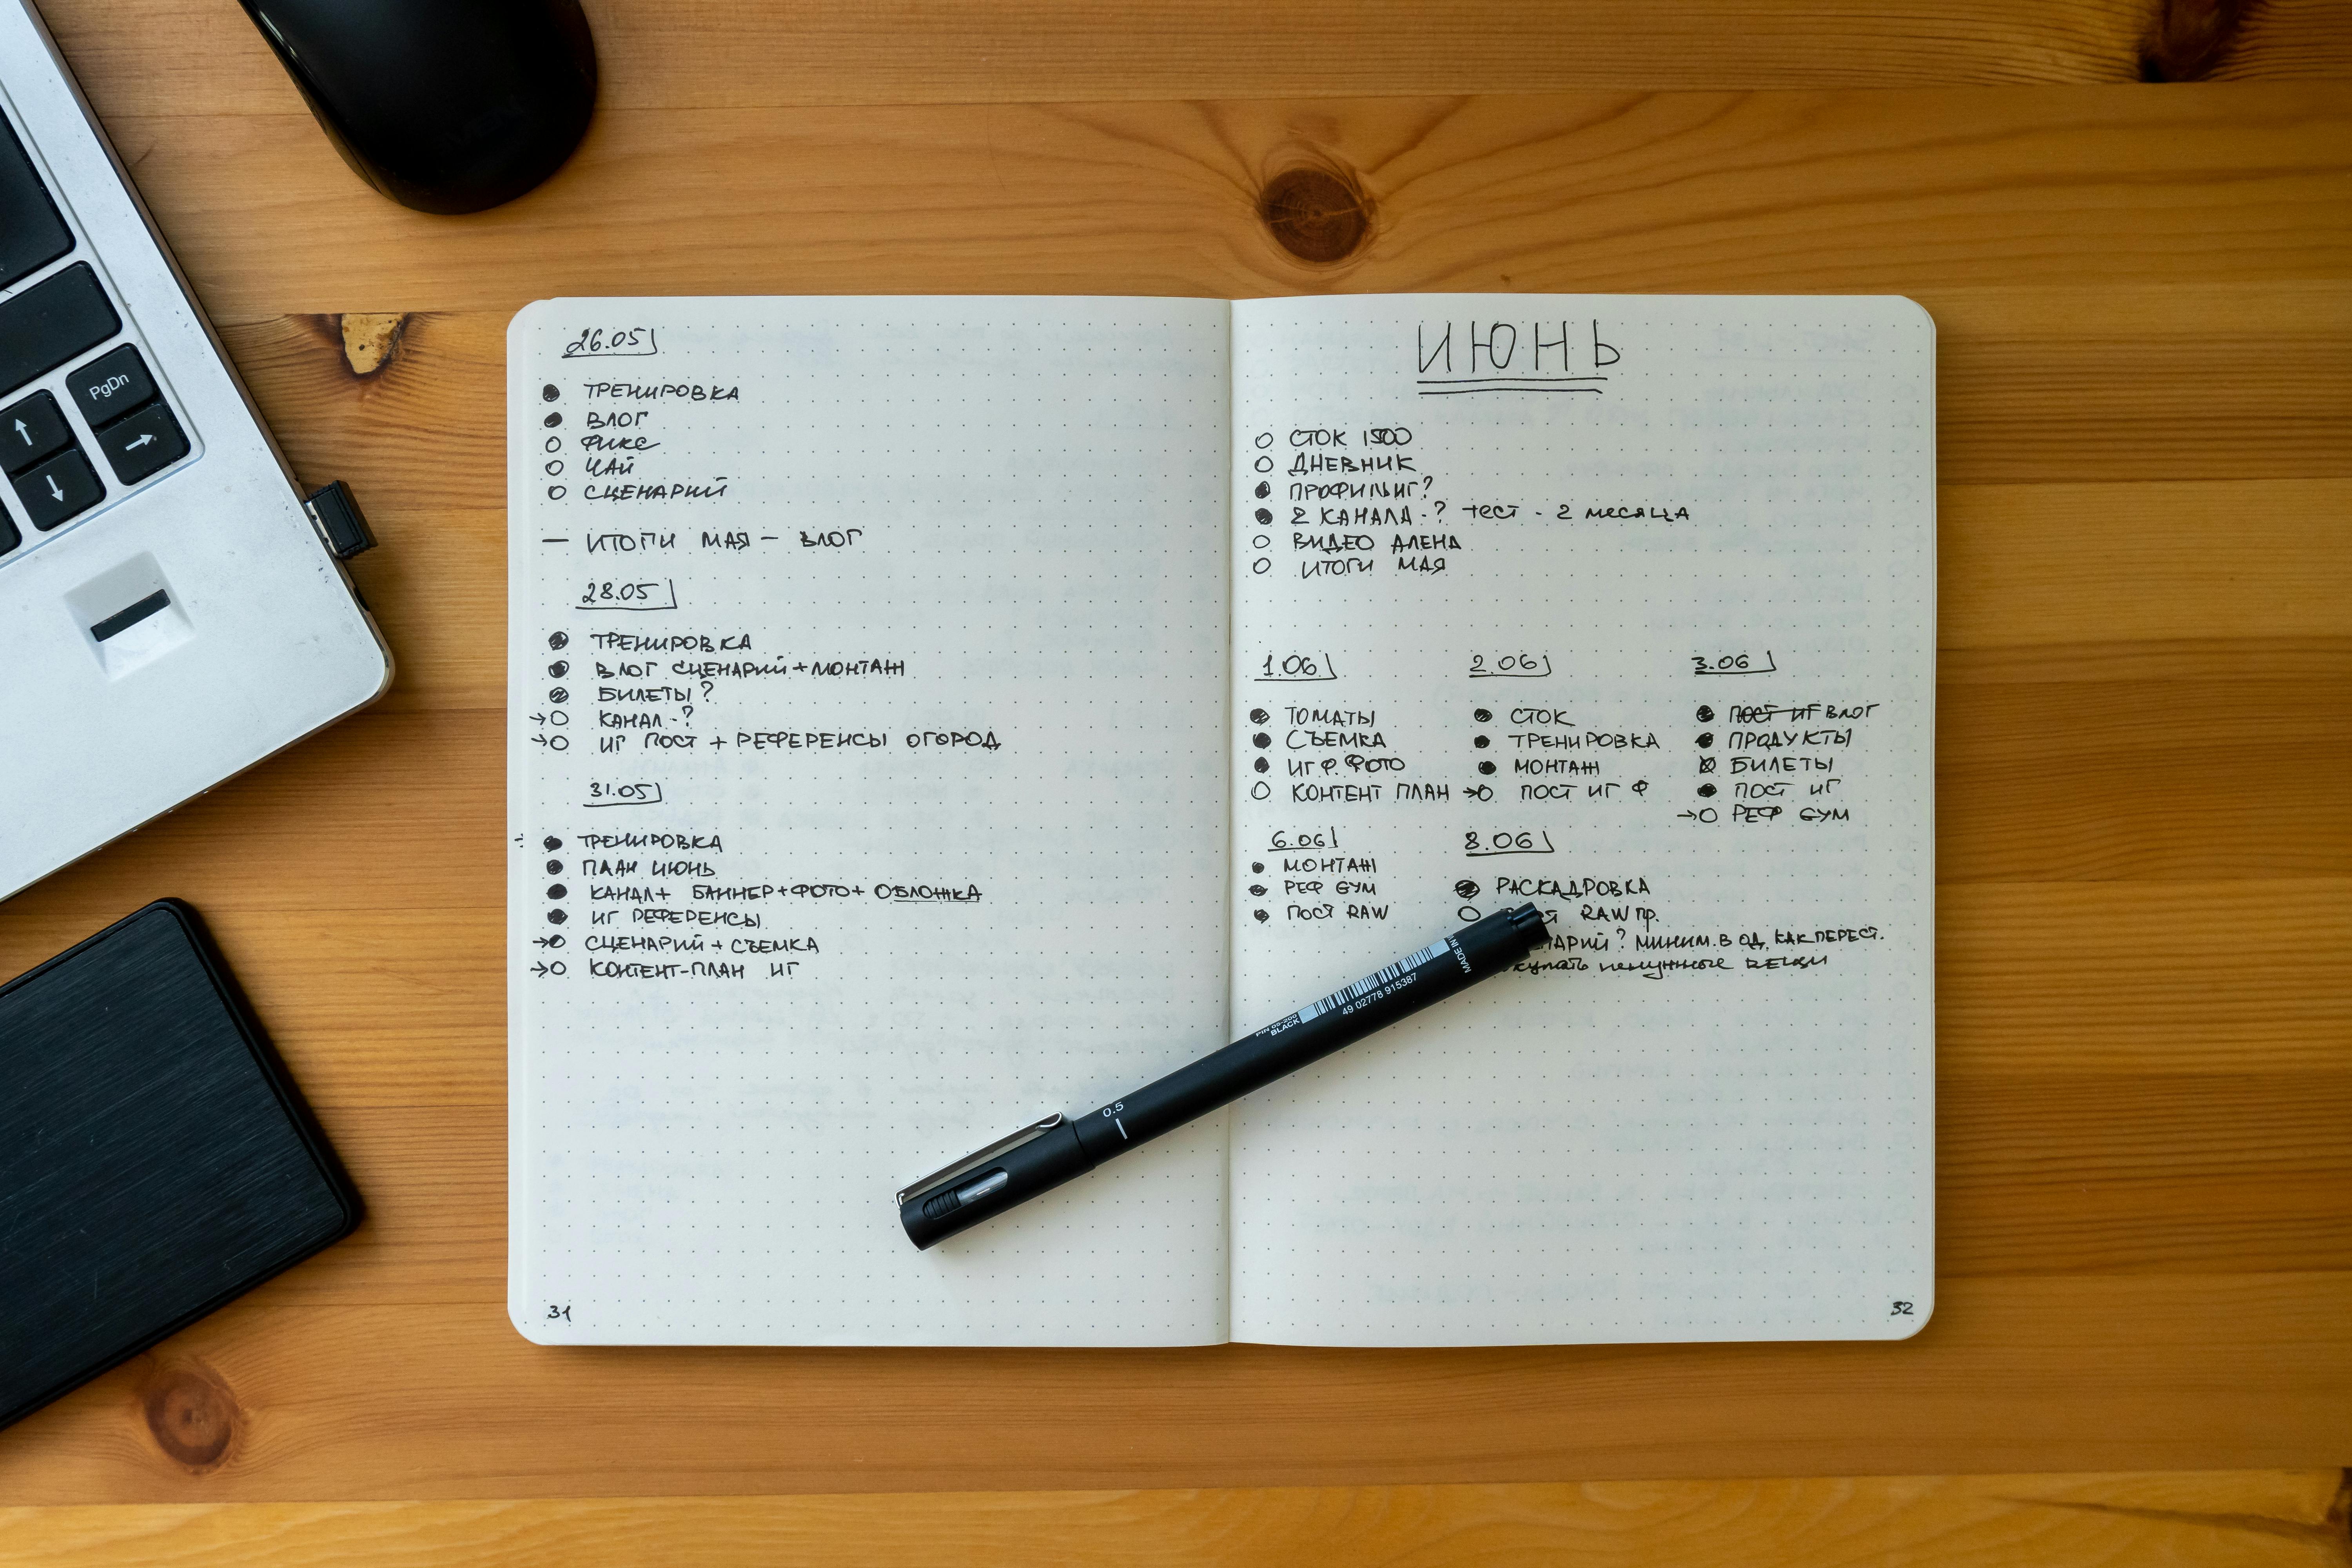 PgDn
26.05
ТРЕНИРОВКА
ВЛОГ
ФИКС
ЧАЙ
СЦЕНАРИЙ
— ИТОГИ МАЯ — ВЛОГ
28.05
ТРЕНИРОВКА
ВЛОГ СЦЕНАРИЙ + МОНТАЖ
БИЛЕТЫ?
→ КАНАЛ - ?
→ ИГ ПОСТ + РЕФЕРЕНСЫ ОГОРОД
31.05
ТРЕНИРОВКА
ПЛАН ИЮНЬ
КАНАЛ + БАННЕР + ФОТО + ОБЛОЖКА
ИГ РЕФЕРЕНСЫ
→ СЦЕНАРИЙ + СЪЕМКА
→ КОНТЕНТ-ПЛАН ИГ
31
ИЮНЬ
СТОК 1500
ДНЕВНИК
ПРОФИЛЬ ИГ?
2 КАНАЛА - ? тест - 2 месяца
ВИДЕО АЛЕНА
ИТОГИ МАЯ
1.06
ТОМАТЫ
СЪЕМКА
ИГ Ф. ФОТО
КОНТЕНТ ПЛАН
2.06
СТОК
ТРЕНИРОВКА
МОНТАЖ
→ ПОСТ ИГ Ф
3.06
ПОСТ ИГ ВЛОГ
ПРОДУКТЫ
БИЛЕТЫ
ПОСТ ИГ
→ РЕФ GYM
6.06
МОНТАЖ
РЕФ GYM
ПОСТ RAW
8.06
РАСКАДРОВКА
RAW ПР.
НАРИЙ? МИНИМ. В ОД. КАК ПЕРЕСТ.
купать ненужные вещи
32
0.5
PIN 05-200
BLACK
49 02778 915387
MADE IN